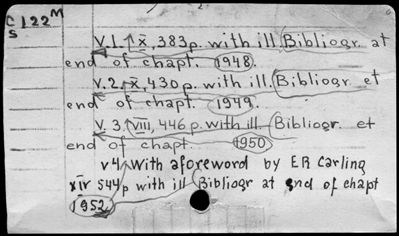 2.
C122M
S
V.1. x̄, 383p. with ill. Bibliogr. at
end of chapt. 1948.
V.2. x̄, 430p. with ill. Bibliogr. et
end of chapt. 1949.
V.3. viii, 446p. with ill Bibliogr. et
end of chapt 1950
v4 with aforeword by ER Carling
xiv 544p with ill Bibliogr at end of chapt
1952